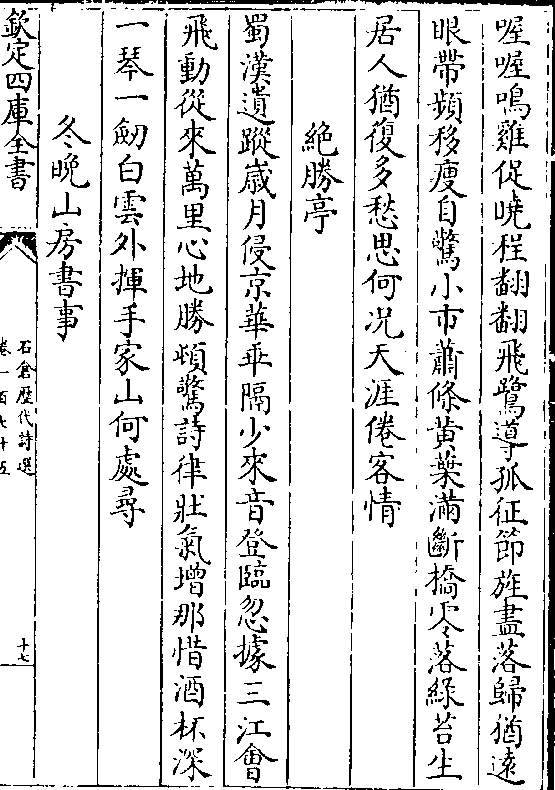 喔喔鳴雞促曉程翻翻飛鷺導孤征節旄盡落歸猶遠
眼帶頻移瘦自驚小市蕭條黄葉滿斷橋零落緑苔生
居人猶復多愁思何况天涯倦客情
絶勝亭
蜀漢遺蹤嵗月侵京華乖隔少來音登臨忽據三江會
飛動從來萬里心地勝頓驚詩律壯氣增那惜酒杯深
一琴一劒白雲外揮手家山何處尋
冬晚山房書事
欽定四庫全書
石倉歴代詩選
卷一百九十五
十七